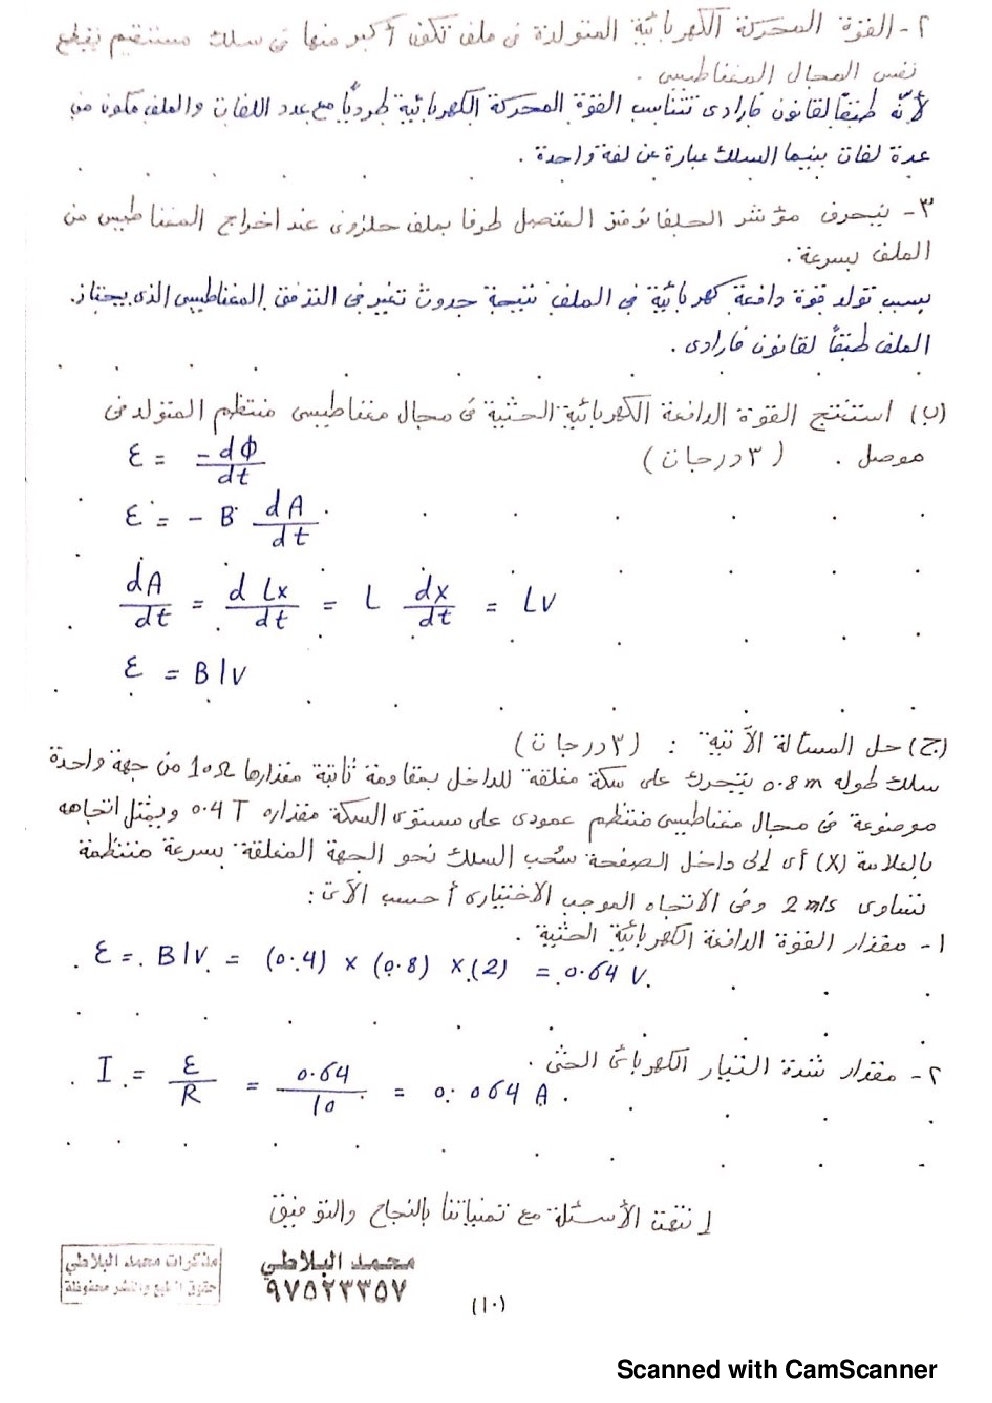 ٢- القوة المحركة الكهربائية المتولدة فى ملف تكون أكبر منها فى سلك مستقيم يقطع
نفس المجال المغناطيسى .
لأنه طبقاً لقانون فارادى تتناسب القوة المحركة الكهربائية طردياً مع عدد اللفات والملف مكون من
عدة لفات بينما السلك عبارة عن لفة واحدة .
٣- ينحرف مؤشر الجلفانومتر المتصل طرفا بملف حلزونى عند اخراج المغناطيس من
الملف بسرعة .
بسبب تولد قوة دافعة كهربائية فى الملف نتيجة حدوث تغير فى التدفق المغناطيسى الذى يجتاز
الملف طبقاً لقانون فارادى .
(ب) استنتج القوة الدافعة الكهربائية الحثية فى مجال مغناطيسى منتظم المتولد فى
موصل . (٣ درجات)
ε = -dΦ/dt
ε = - B dA/dt
dA/dt = d Lx/dt = L dx/dt = Lv
ε = Blv
(ج) حل المسألة الآتية : (٣ درجات)
سلك طوله 0.8 m يتحرك على سكة مغلقة للداخل بمقاومة ثابتة مقدارها 10Ω من جهة واحدة
موضوعة فى مجال مغناطيسى منتظم عمودى على مستوى السكة مقداره 0.4 T ويمثل اتجاهه
بالعلامة (X) أى إلى داخل الصفحة سُحب السلك نحو الجهة المغلقة بسرعة منتظمة
تساوى 2 m/s وفى الاتجاه الموجب الاختيارى أحسب الآتى :
١- مقدار القوة الدافعة الكهربائية الحثية .
ε = Blv = (0.4) x (0.8) x (2) = 0.64 V.
٢- مقدار شدة التيار الكهربائى الحثى .
I = ε/R = 0.64/10 = 0.064 A .
إنتهت الأسئلة مع تمنياتنا بالنجاح والتوفيق
محمد البلاطي
٩٧٥٢٣٣٥٧
مذكرات محمد البلاطي
حقوق الطبع والنشر محفوظة
(١٠)
Scanned with CamScanner